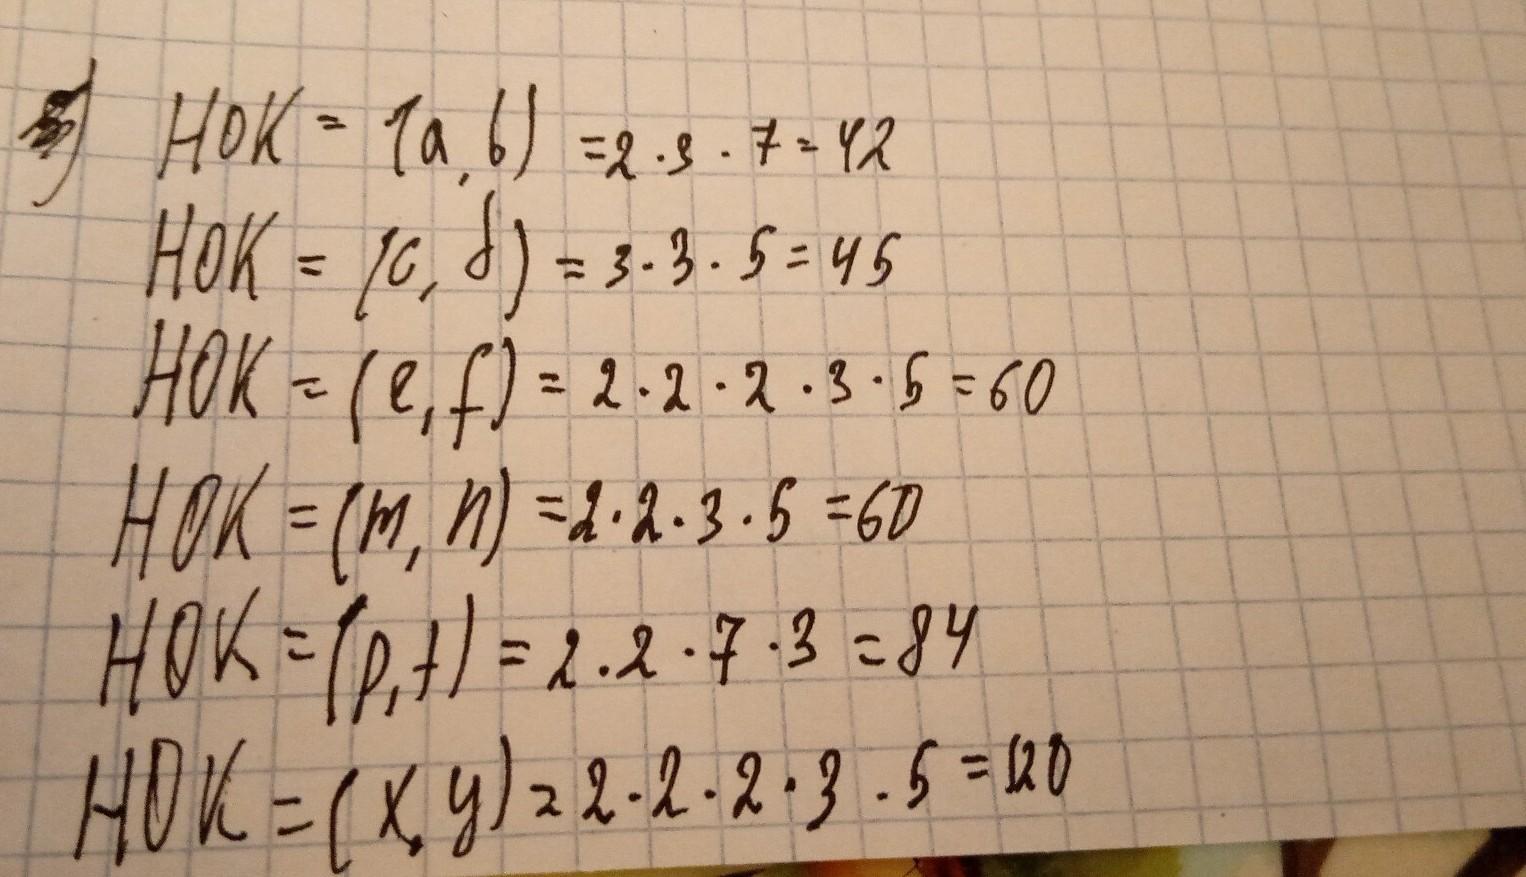 НОК = (a, b) = 2 · 3 · 7 = 42
НОК = (c, d) = 3 · 3 · 5 = 45
НОК = (e, f) = 2 · 2 · 2 · 3 · 5 = 60
НОК = (m, n) = 2 · 2 · 3 · 5 = 60
НОК = (p, t) = 2 · 2 · 7 · 3 = 84
НОК = (x, y) = 2 · 2 · 2 · 3 · 5 = 120